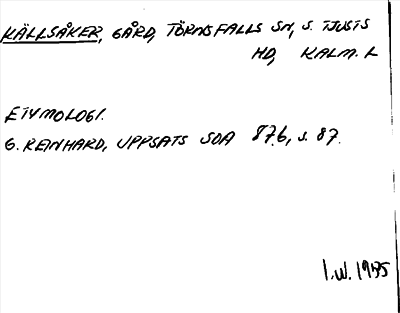 KÄLLSÅKER, GÅRD, TÖRNSFALLS SN, S. TJUSTS
HD, KALM. L
ETYMOLOGI.
G. REINHARD, UPPSATS SOA 87.6, s. 87.
I.W. 1975